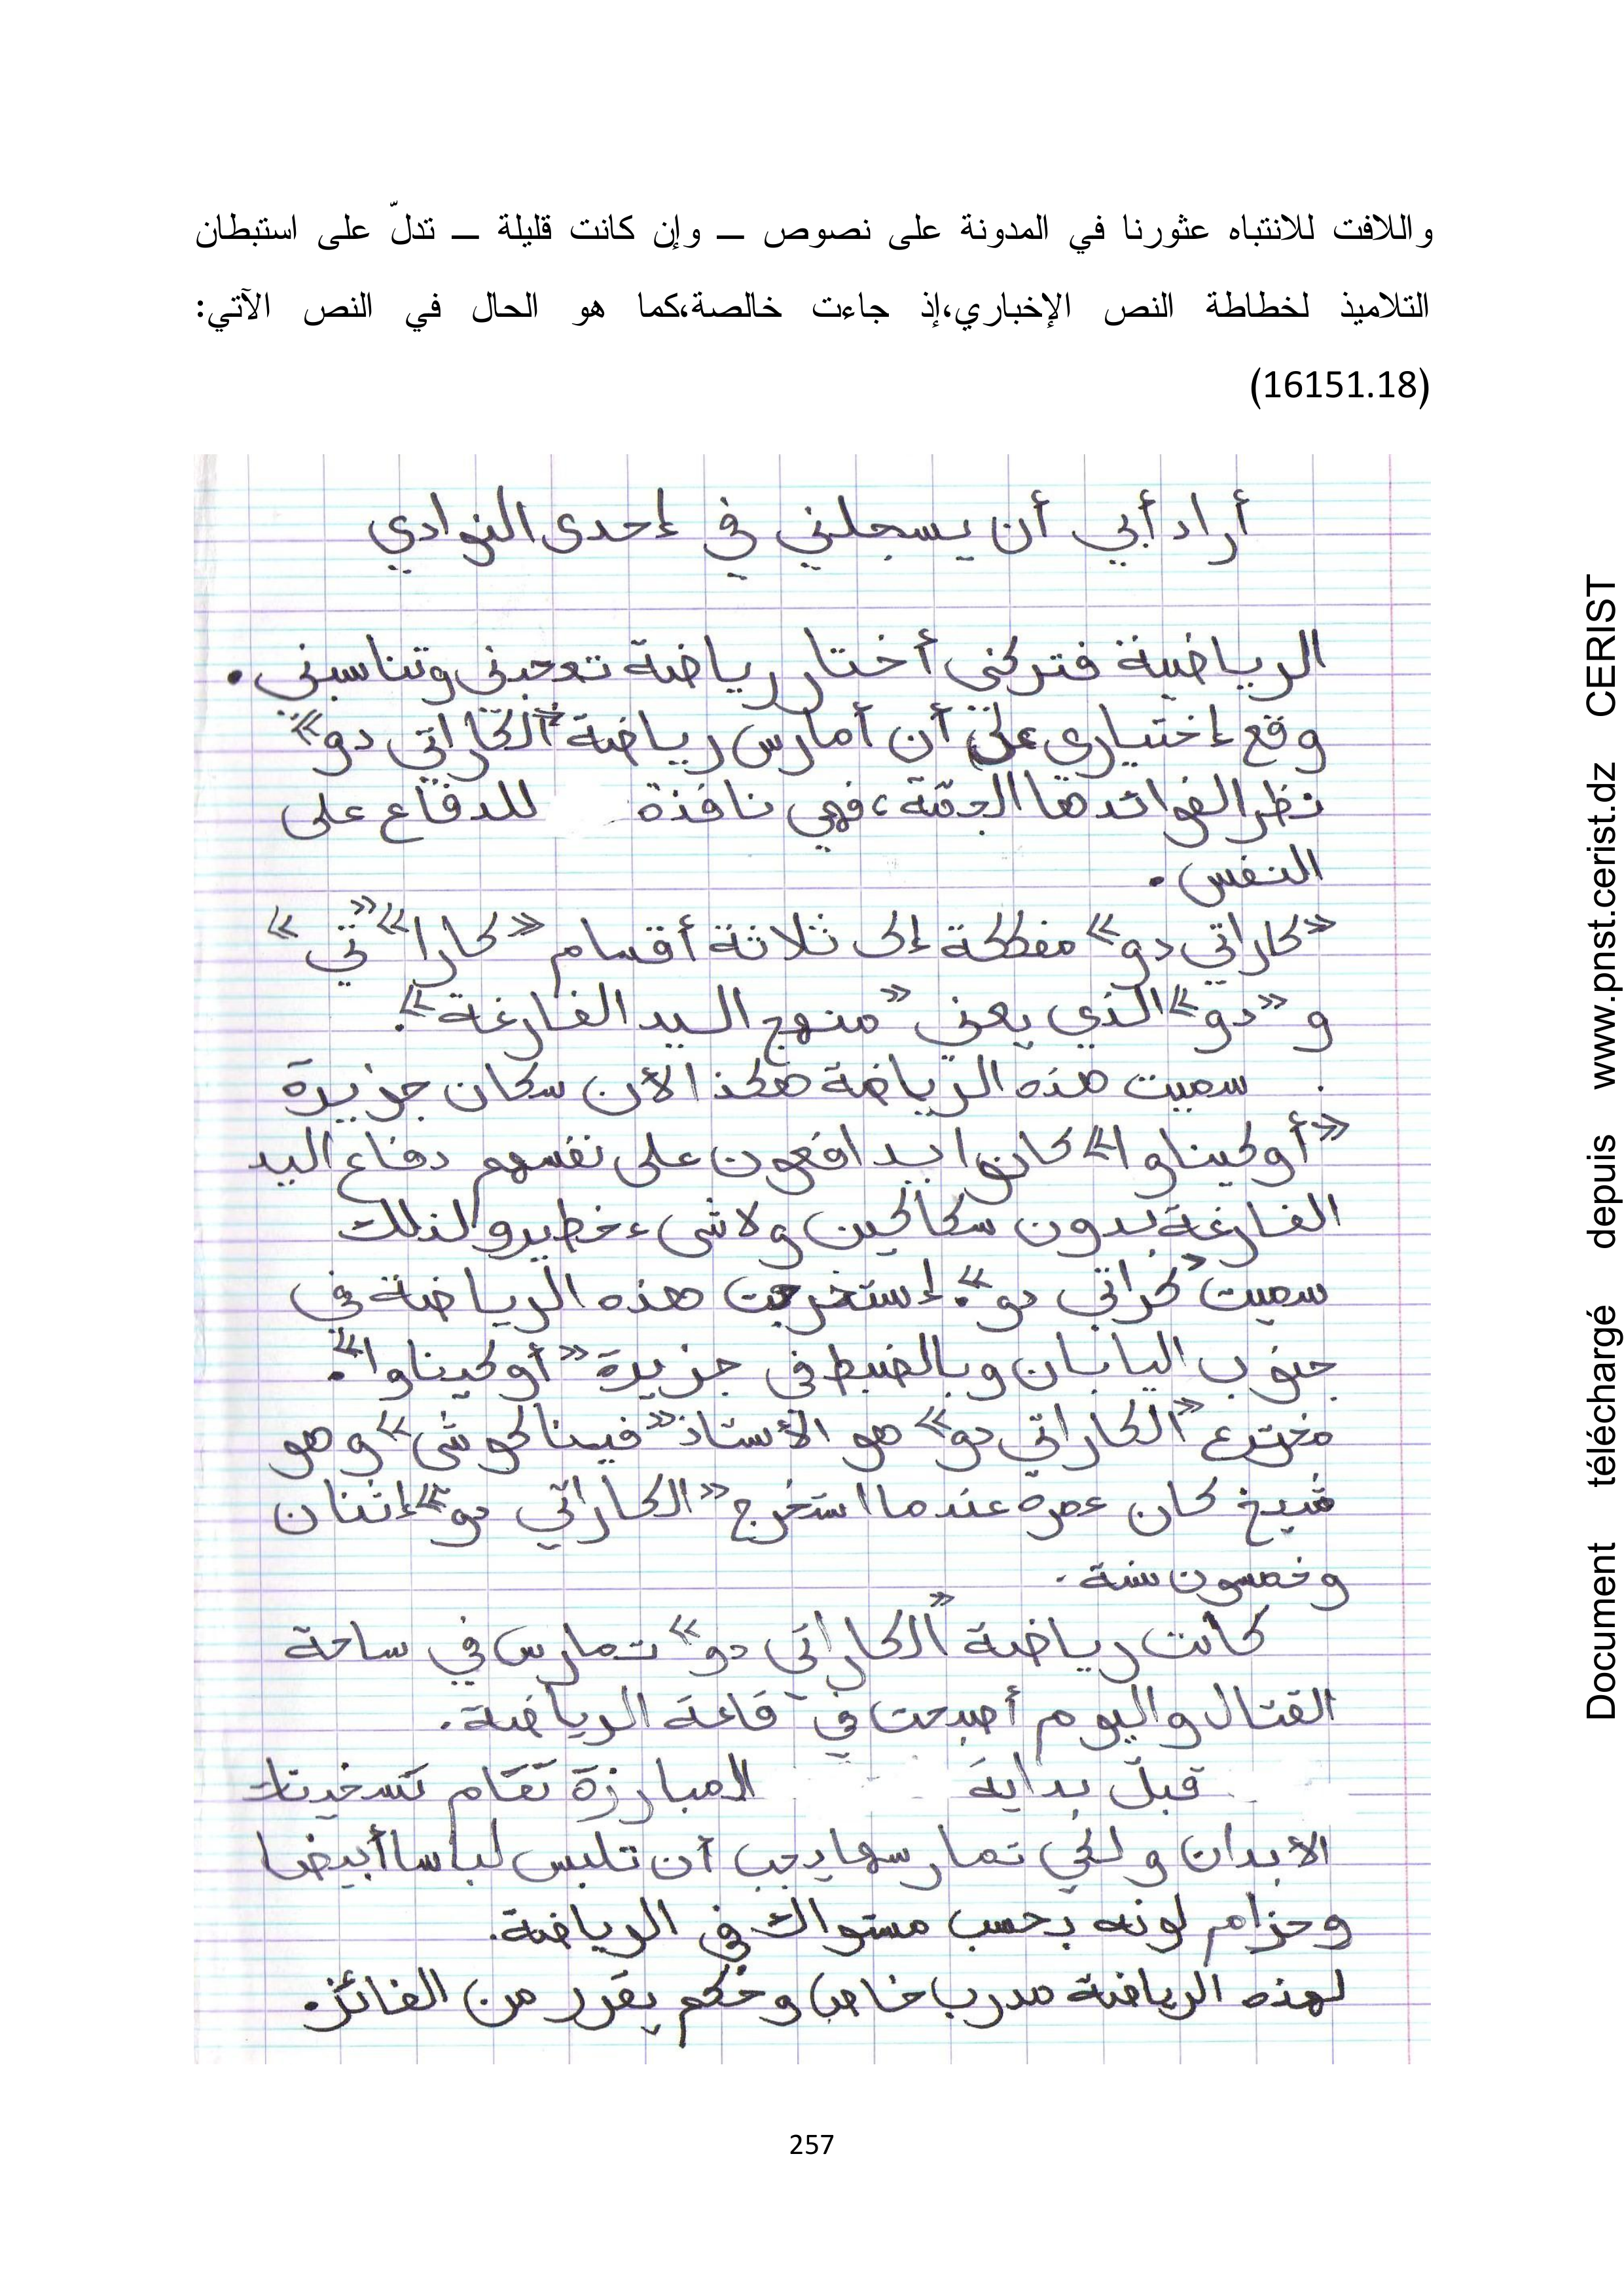 واللافت للانتباه عثورنا في المدونة على نصوص ــ وإن كانت قليلة ــ تدلّ على استبطان
التلاميذ لخطاطة النص الإخباري،إذ جاءت خالصة،كما هو الحال في النص الآتي:
(16151.18)
أراد أبي أن يسجلني في إحدى النوادي
الرياضية فتركني أختار رياضة تعجبني وتناسبني.
وقع إختياري على أن أمارس رياضة «الكاراتي دو»
نظرا لفوائدها الجمّة، فهي نافذة للدفاع على
النفس.
«كاراتي دو» مفككة إلى ثلاثة أقسام «كارا» «تي»
و «دو» الذي يعني «منهج اليد الفارغة».
سميت هذه الرياضة هكذا لأن سكان جزيرة
«أوكيناوا» كانوا يدافعون على نفسهم دفاع اليد
الفارغة بدون سكاكين ولا شيء خطير ولذلك
سميت «كراتي دو». إستخرجت هذه الرياضة في
جنوب اليابان وبالضبط في جزيرة «أوكيناوا».
مخترع «الكاراتي دو» هو الأستاذ «فيناكوشي» وهو
شيخ كان عمره عندما استخرج «الكاراتي دو» إثنان
وخمسون سنة.
كانت رياضة «الكاراتي دو» تمارس في ساحة
القتال واليوم أصبحت في قاعة الرياضة.
قبل بداية المبارزة تقام تسخينات
الأبدان ولكي تمارسها يجب أن تلبس لباسا أبيضا
وحزام لونه بحسب مستواك في الرياضة.
لهذه الرياضة مدرب خاص وحكم يقرر من الفائز.
257
Document téléchargé depuis www.pnst.cerist.dz CERIST